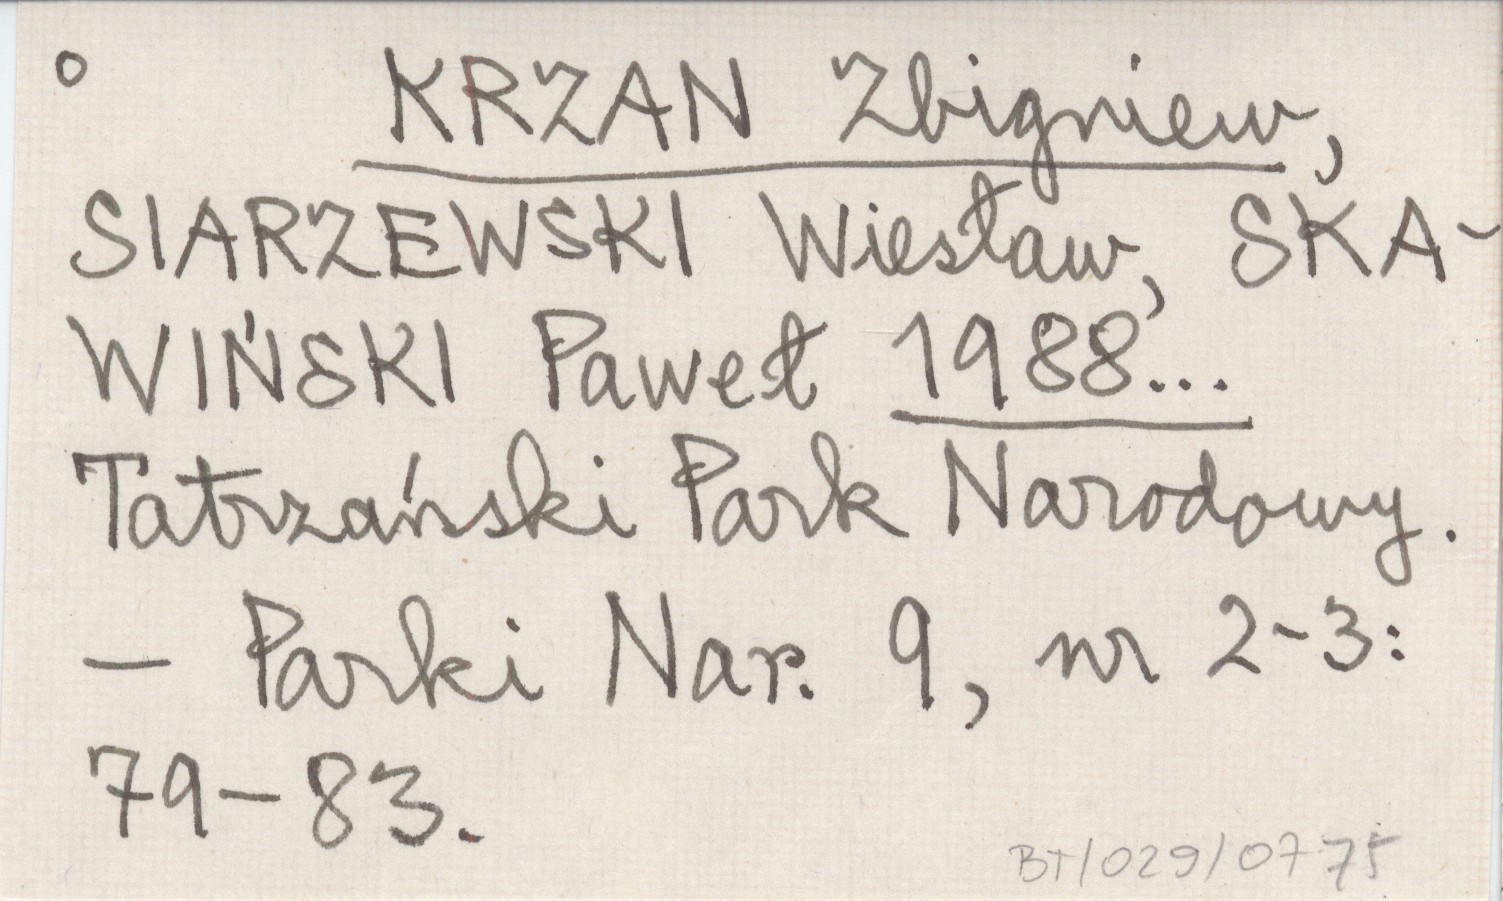 ° KRZAN Zbigniew,
SIARZEWSKI Wiesław, SKA-
WIŃSKI Paweł 1988...
Tatrzański Park Narodowy.
— Parki Nar. 9, nr 2-3:
79-83.
BT/029/0775